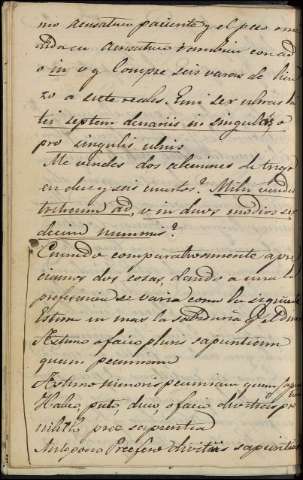 mo acusativo paciente y el peso me
dida en acusativo tambien con ad
o in v g Compre seis varas de lien
zo a siete reales. Emi sex ulnas
tii septem denariis in singulas, o
pro singulis ulnis
Me vendes dos celemines de trigo
en diez y seis cuartos? Mihi vendis
triticum ad, v in duos modios se
decim nummis?
Cuando comparativamente apre
ciamos dos cosas, dando a una la
preferencia se varia como la siguiente
Estimo en mas la sabiduria q.e el dinero
Æstimo o facio pluris sapientiam
quam pecuniam
Æstimo minoris pecuniam quam
Habeo, puto, duco, o facio divitias pro
nihilo præ sapientia
Antepono Præfero divitiis sapientiam